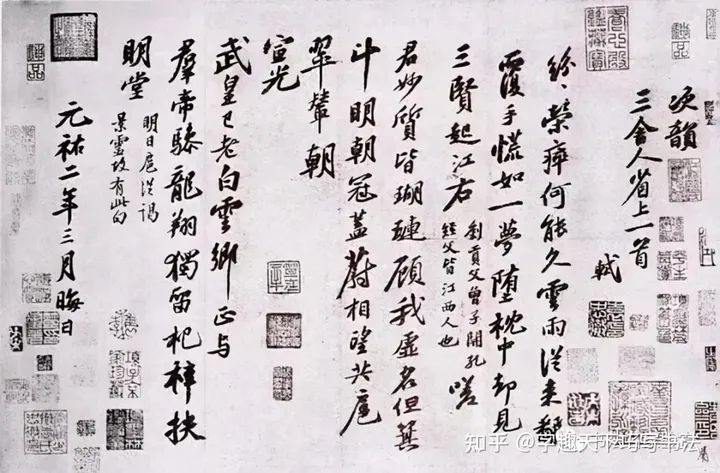 次韻
三舍人省上一首
軾
紛〻榮瘁何能久雲雨從来翻
覆手慌如一夢墮枕中却見
三賢起江右
劉貢父曾子開孔
經父皆江西人也
嗟
君妙質皆瑚璉顧我虛名但箕
斗明朝冠蓋蔚相望共扈
翠輦朝
宣光
武皇已老白雲鄉正与
羣帝驂龍翔獨留杞梓扶
明堂
明日扈從謁
景靈故有此句
元祐二年三月晦日
知乎